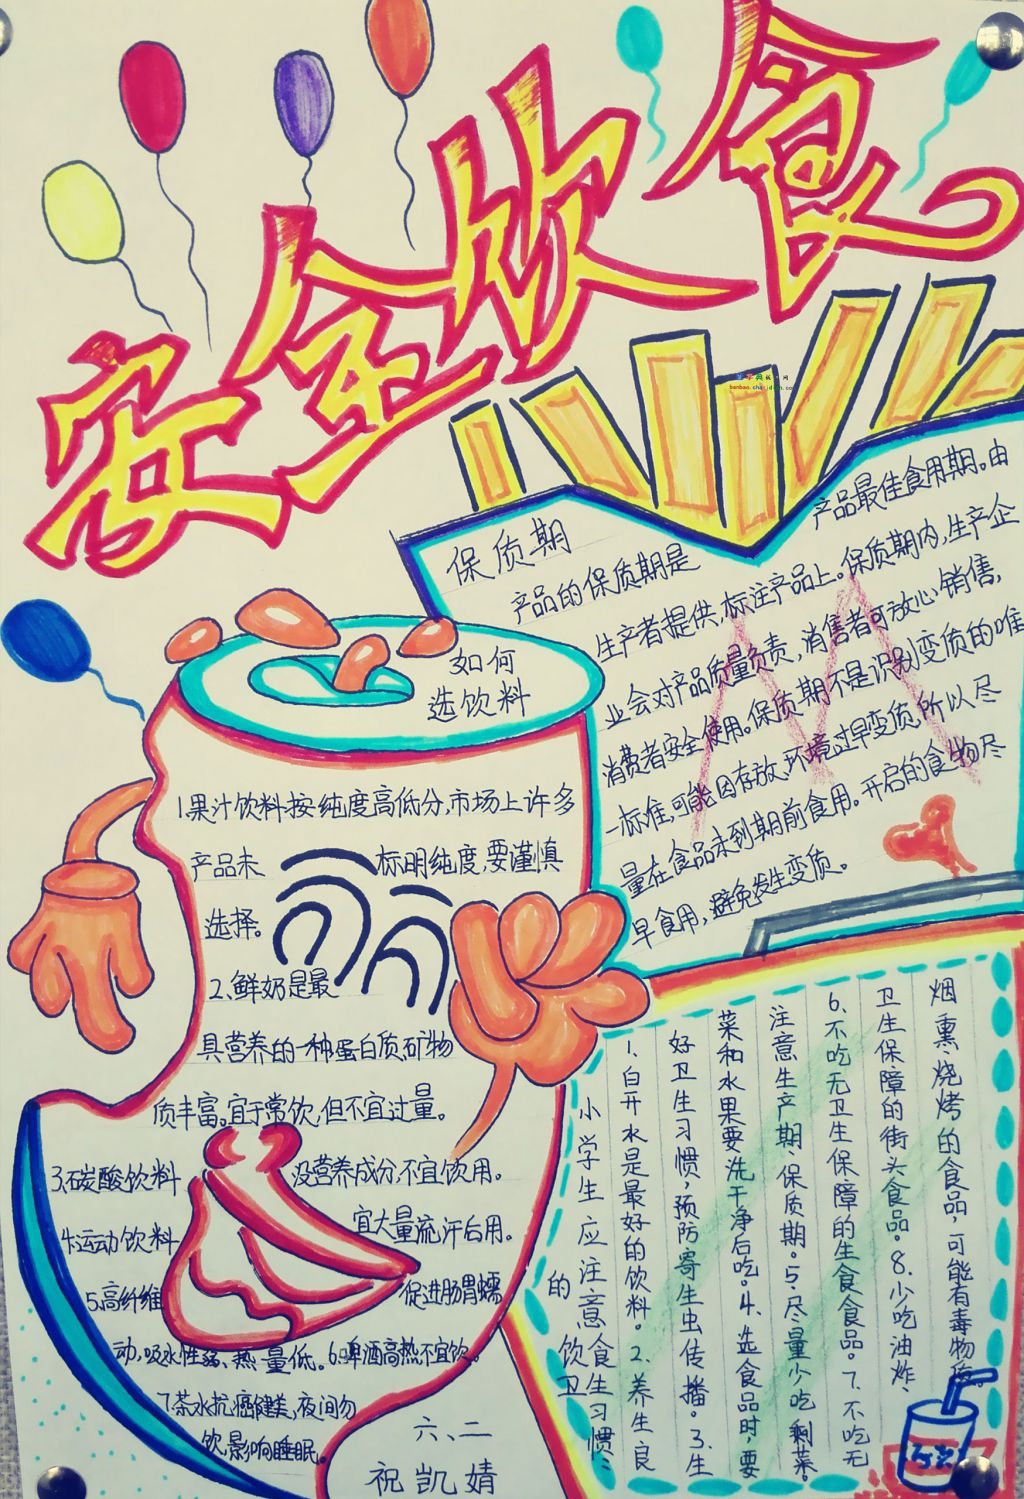 安全饮食
保质期
产品的保质期是
产品最佳食用期。由
生产者提供,标注产品上。保质期内,生产企
业会对产品质量负责,消售者可放心销售,
消费者安全使用。保质期不是识别变质的唯
一标准,可能因存放、环境过早变质,所以尽
量在食品未到期前食用。开启的食物尽
早食用,避免发生变质。
如何
选饮料
1.果汁饮料按纯度高低分,市场上许多
产品未标明纯度,要谨慎
选择。
2.鲜奶是最
具营养的一种蛋白质,矿物
质丰富。宜于常饮,但不宜过量。
3.碳酸饮料没营养成分,不宜饮用。
4.运动饮料宜大量流汗后用。
5.高纤维促进肠胃蠕
动,吸水性强、热量低。6.啤酒高热不宜饮。
7.茶水抗癌健美,夜间勿
饮,影响睡眠。
小学生应注意
的
饮食
卫生习惯:
1.白开水是最好的饮料。2.养生良
好卫生习惯,预防寄生虫传播。3.生
菜和水果要洗干净后吃。4.选食品时,要
注意生产期、保质期。5.尽量少吃剩菜。
6.不吃无卫生保障的生食食品。7.不吃无
卫生保障的街头食品。8.少吃油炸、
烟熏、烧烤的食品,可能有毒物质。
六、二
祝凯婧
banbao.chazidian.com